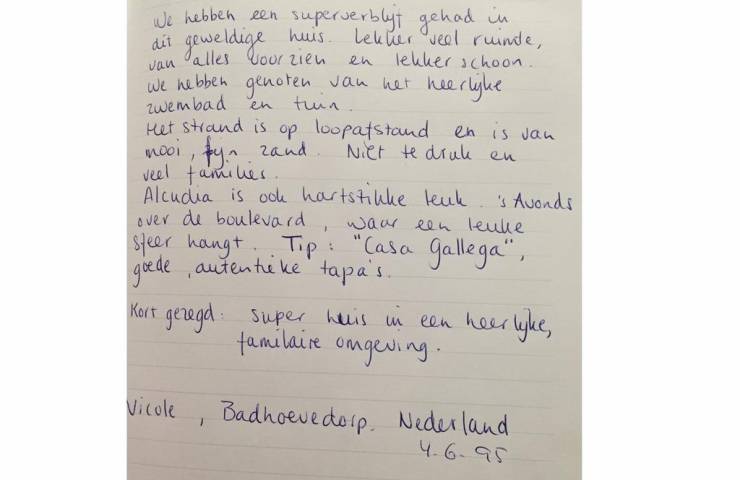 We hebben een superverblijf gehad in
dit geweldige huis. Lekker veel ruimte,
van alles voorzien en lekker schoon.
We hebben genoten van het heerlijke
zwembad en tuin.
Het strand is op loopafstand en is van
mooi, fijn zand. Niet te druk en
veel families.
Alcudia is ook hartstikke leuk. 's Avonds
over de boulevard, waar een leuke
sfeer hangt. Tip: "Casa Gallega",
goede, autentieke tapa's.
Kort gezegd: super huis in een heerlijke,
familaire omgeving.
Nicole, Badhoevedorp. Nederland
4-6-95